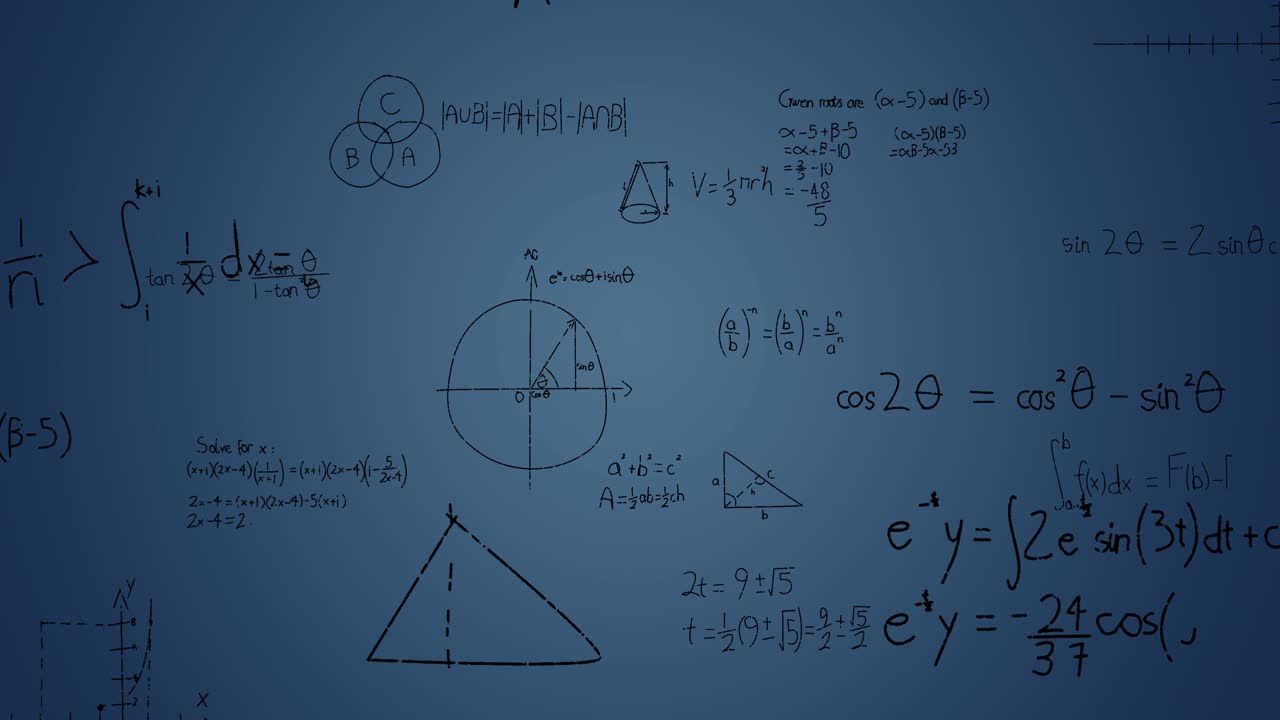 C
B A
|A∪B|=|A|+|B|-|A∩B|
Given roots are (α-5) and (β-5)
α-5+β-5
=α+β-10
-10
= -48/5
(α-5)(β-5)
h
V = 1/3 πr²h
1/n > ∫ k+i i
tan
1-tan²θ
sin 2θ = 2 sinθ
e^iθ=cosθ+isinθ
sinθ
θ
O cosθ 1
(a/b)^-n = (b/a)^n = b^n/a^n
cos2θ = cos²θ - sin²θ
(β-5)
Solve for x:
(x+1)(2x-4)(1/(x+1)) = (x+1)(2x-4)(1-5/(2x-4))
2x-4=(x+1)(2x-4)-5(x+1)
2x-4=2
a²+b²=c²
A=½ab=½ch
a c h b
∫ b a f(x)dx = F(b)-
y = ∫2e sin(3t)dt + c
2t = 9±√5
t = ½(9±√5) = 9/2 ± √5/2
y = -24/37 cos(
y
8
4
2
x